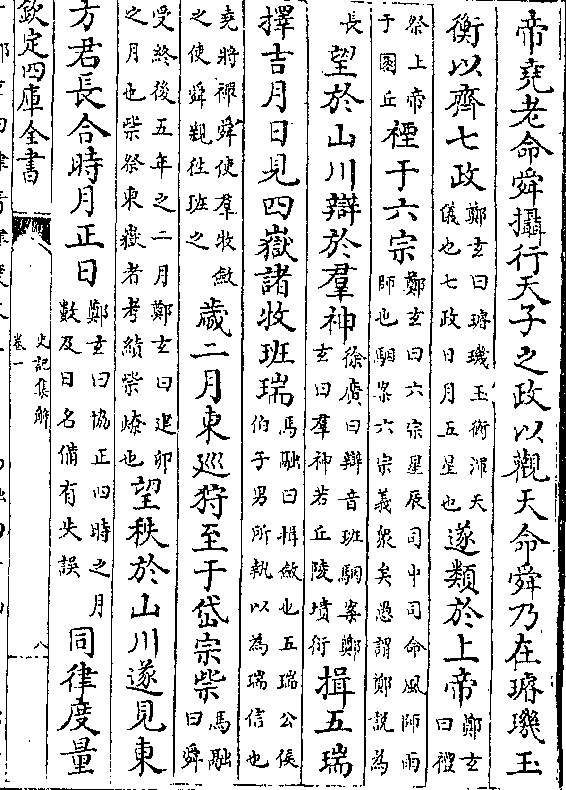 帝堯老命舜攝行天子之政以觀天命舜乃在璿璣玉
衡以齊七政鄭玄曰璿璣玉衡渾天儀也七政日月五星也遂類於上帝鄭玄曰禮
祭上帝于圜丘禋于六宗鄭玄曰六宗星辰司中司命風師雨師也駰案六宗義衆矣愚謂鄭說為
長望於山川辯於羣神徐廣曰辯音班駰案鄭玄曰羣神若丘陵墳衍揖五瑞
馬融曰揖斂也五瑞公侯伯子男所執以為瑞信也
擇吉月日見四嶽諸牧班瑞
堯將禪舜使羣牧斂之使舜親往班之歲二月東巡狩至于岱宗祡馬融曰舜
受終後五年之二月鄭玄曰建卯之月也祡祭東嶽者考績祡燎也望秩於山川遂見東
方君長合時月正日鄭玄曰協正四時之月數及日名備有失誤同律度量
欽定四庫全書
史記集解
卷一
八